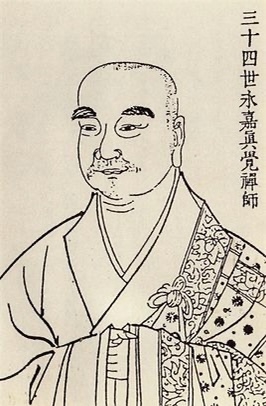 三十四世永嘉真覺禪師